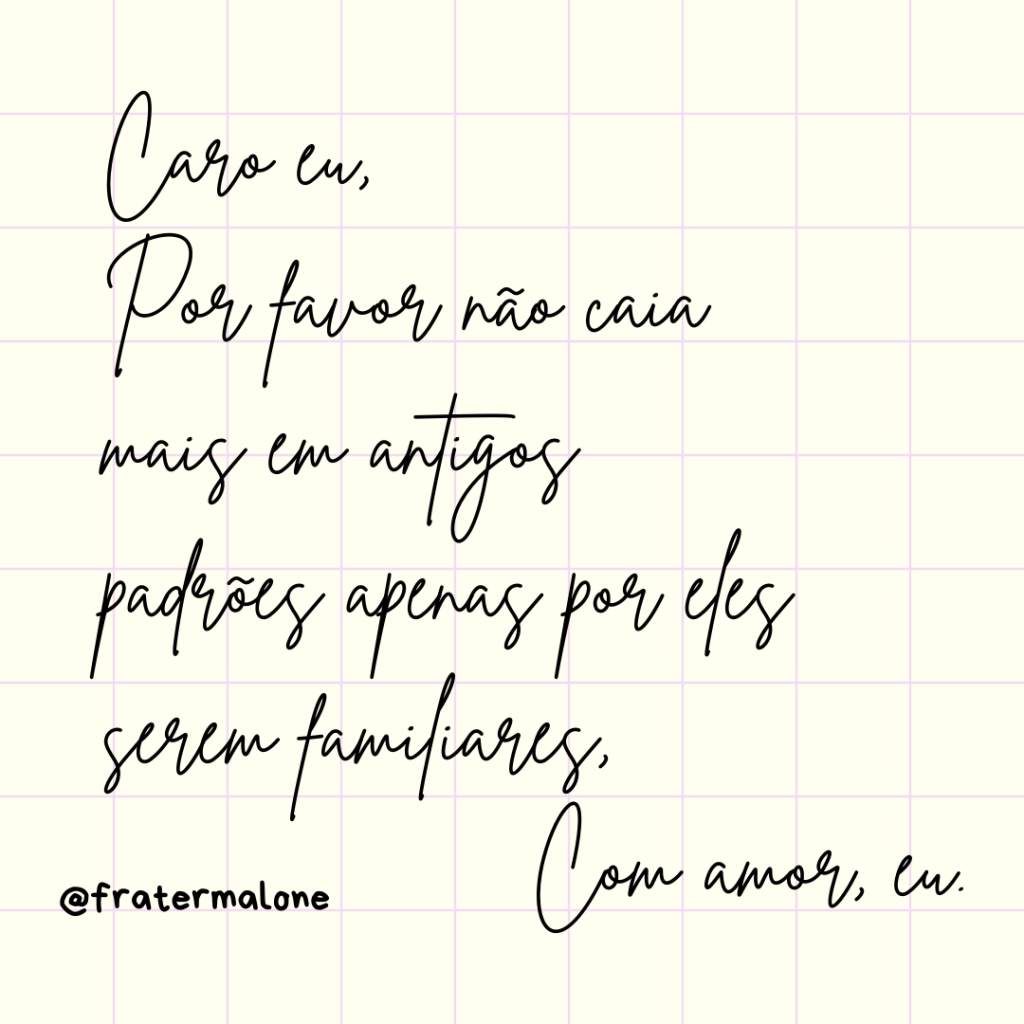 Caro eu,
Por favor não caia
mais em antigos
padrões apenas por eles
serem familiares,
Com amor, eu.
@fratermalone